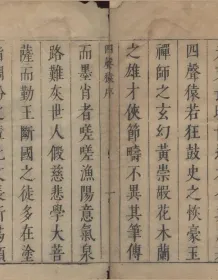 四聲猿若狂鼓史之恢豪玉
禪師之玄幻黃崇嘏花木蘭
之雄才俠節疇不異其筆傳
四聲猿序
而墨肖者嗟嗟漁陽意氣泉
路難灰世人假慈悲學大菩
薩而勤王斷國之徒多在塗